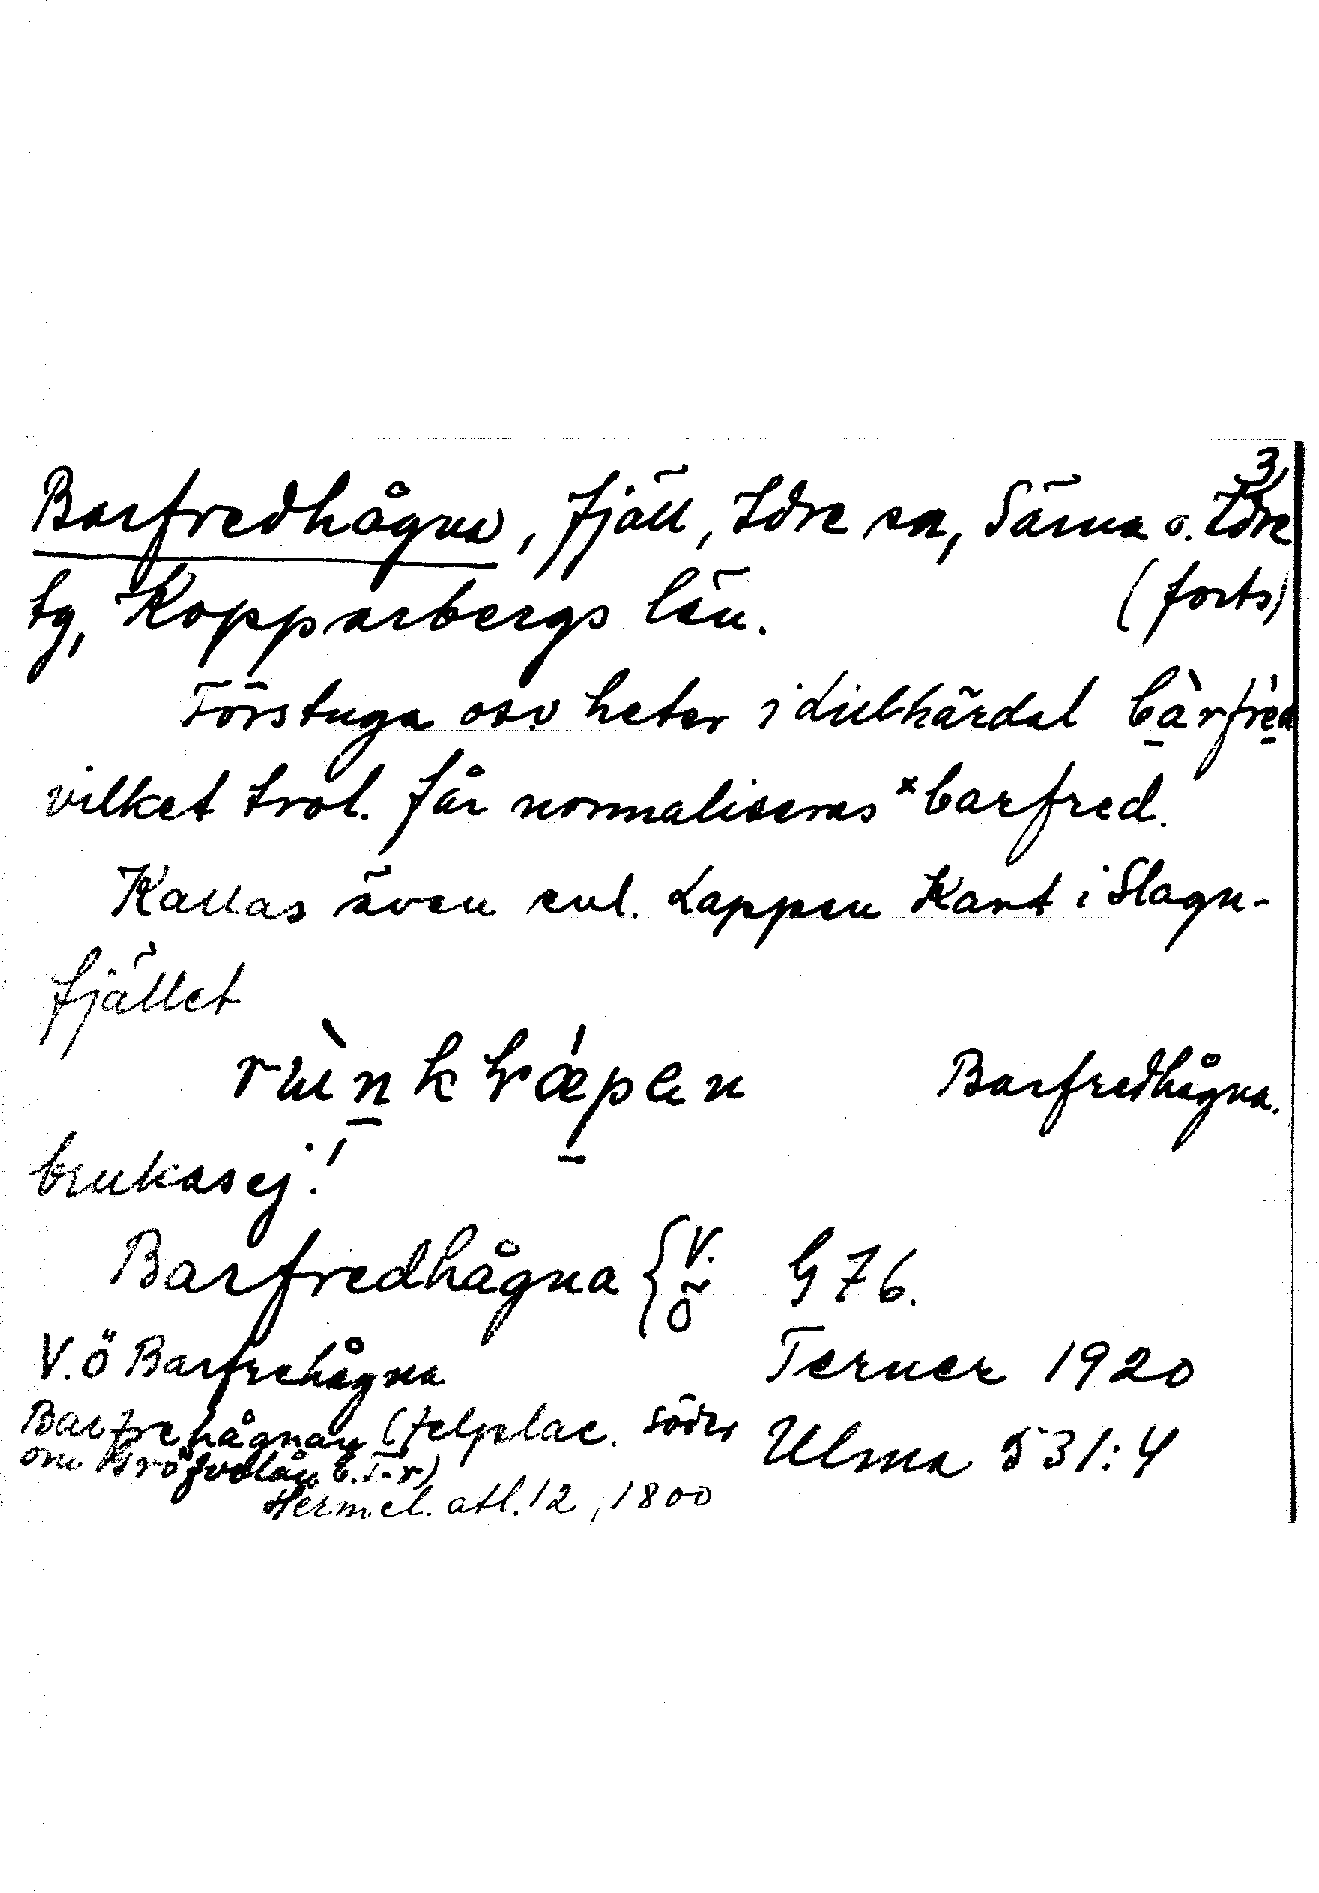 3,
Barfredhågna, fjäll, Idre sn, Särna o. Idre
tg, Kopparbergs län. (forts)
Förstuga osv heter i Lillhärdal bàrfrèd
vilket trol. får normaliseras *barfred.
Kallas även enl. Lappen Kant i Slagu-
fjället
Barfredhågna.
brukas ej!
Barfredhågna { V. Ö G 76.
V. Ö Barfrehågna Terner 1920
Barfrehågnan (felplac. söder Ulma 531:4
om Gröfvelån
Hermel. atl. 12, 1800